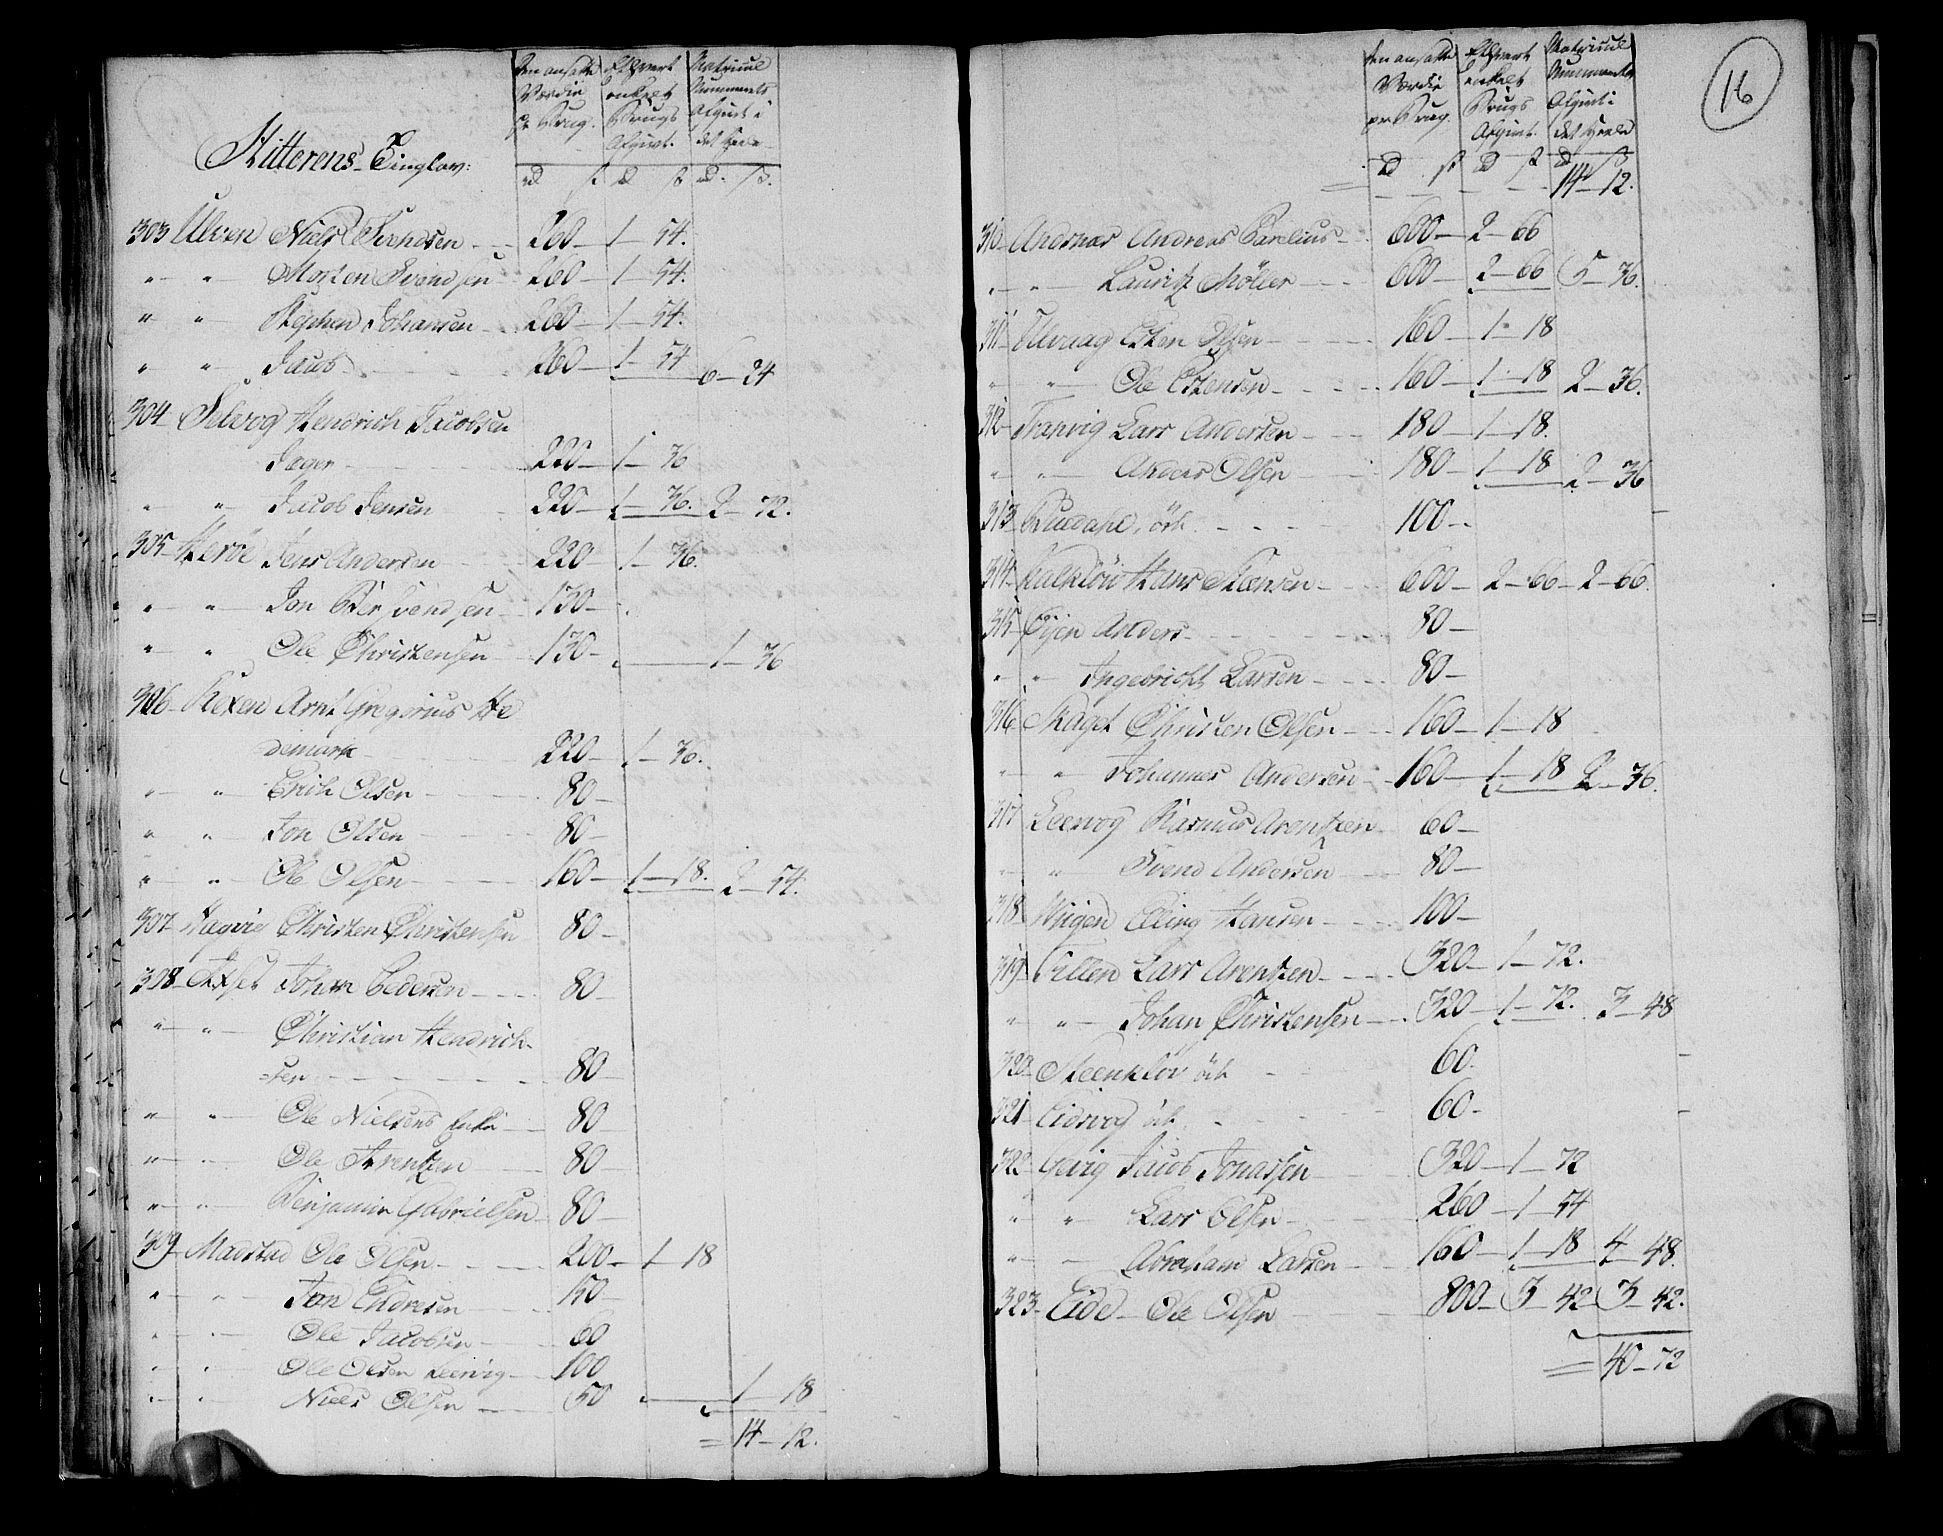 16
Hitterens Tinglav:
den ansatte Værdie pr Brug. | Ethvert enkelt Brugs Afgivt. | Matricul Nummerets Afgivt i det Heele
rd ß rd ß rd. ß.
303 Ulven Niels Svendsen 260 – 1 – 54.
" " Morten Svendsen 260 – 1 – 54.
" " Stephen Johansen 260 – 1 – 54.
" " Jacob 260 – 1 – 54 6 – 24
304 Selvog Hendrich Jacobsen
Jæger 220 – 1 – 36
" " Jacob Jensen 220 – 1 – 36. 2 – 72.
305 Herøe Jens Andersen 220 – 1 – 36.
" " Jon Svendsen 130 –
" " Ole Christensen 130 – 1 – 36
306 Kixen Arnt Gregorius He
demark 220 – 1 – 36.
" " Erich Olsen 80 –
" " Jon Olsen 80 –
" " Ole Olsen 160 – 1 – 18. 2 – 54.
307 Christen Christensen 80 –
308 Johan Pedersen 80 –
" " Christian Hendrich-
sen 80 –
" " Ole Nielsens Enke 80 –
" " Ole Arentzen 80 –
" " Benjamin Gabrielsen 80 –
309 Madstad Ole Olsen 200 – 1 – 18
" " Jon Endresen 150 –
" " Ole Jacobsen 60
" " Ole Olsen Leervig 100
" " Niels Olsen 50 1 – 18
= 14 – 12.
den ansatte Værdie pr Brug. | Ethvert enkelt Brugs Afgivt. | Matricul Nummerets Afgivt i det Heele
rd ß rd ß rd ß
= 14 – 12.
310 Andsnæs Andreas Parelius 600 – 2 – 66
" " Lauritz Møller 600 – 2 – 66 5 – 36.
311 Ulvaag Esten Olsen 160 – 1 – 18
" " Ole Estensen 160 – 1 – 18 2 – 36.
312 Tranvig Lars Andersen 180 – 1 – 18.
" " Anders Olsen 180 – 1 – 18 2 – 36
313 öde 100 –
314 Kalkløv Hans 600 – 2 – 66 – 2 – 66.
315 Öyen Anders 80 –
" " Ingebricht Larsen 80 –
316 Skaget Christen Olsen 160 – 1 – 18
" " Johannes Andersen 160 – 1 – 18 2 – 36.
317 Leervog Rasmus Arentzen 60 –
" " Svend Andersen 80 –
318 Wiigen Elling Hansen 100 –
319 Fillen Lars Arentzen 320 – 1 – 72.
" " Johan Christensen 320 – 1 – 72. 3 – 48
320 Steenkløv öde 60.
321 Eidsvog öde 60 –
322 Jacob Jonassen 320 – 1 – 72
" " Lars Olsen 260 – 1 – 54
" – Abraham Larsen 160 – 1 – 18 4 – 48.
323 Eide Ole Olsen 800 – 3 – 42 – 3 – 42.
= 40 – 72